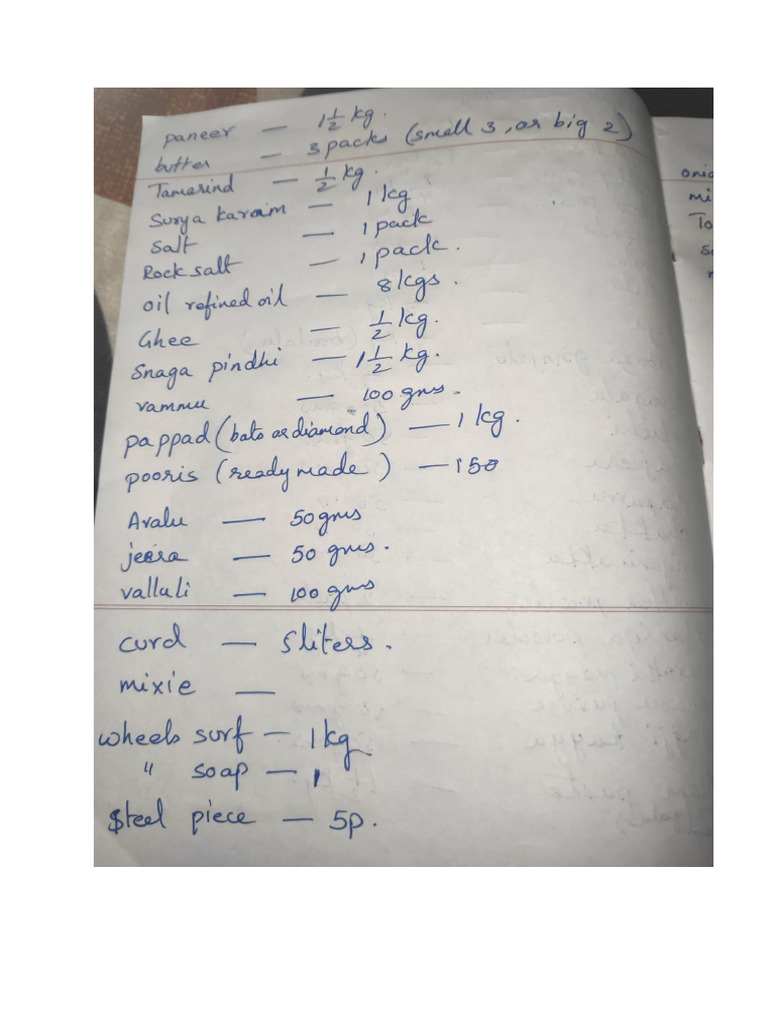 paneer — 1 1/2 kg.
butter — 3 packs (small 3, or big 2)
Tamarind — 1/2 kg.
Surya karam — 1 kg
Salt — 1 pack
Rock salt — 1 pack.
oil refined oil — 8 kgs.
Ghee — 1/2 kg.
Snaga pindhi — 1 1/2 kg.
vammu — 100 gms.
pappad (bato or diamond) — 1 kg.
pooris (ready made) — 150
Avalu — 50 gms
jeera — 50 gms.
valluli — 100 gms
curd — 5 liters.
mixie —
wheels surf — 1 kg
" soap — 1
Steel piece — 5p.